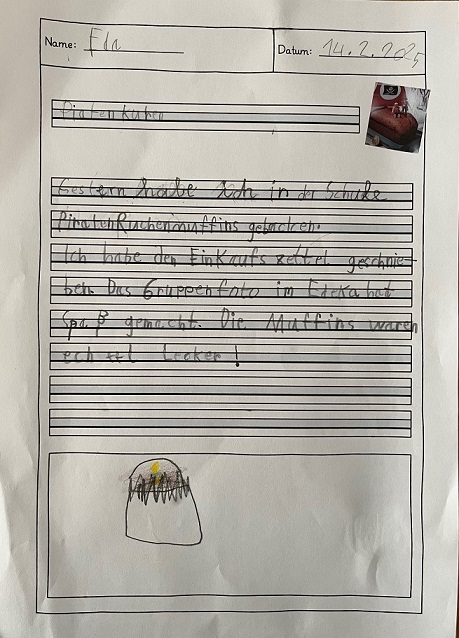 Name: Eda
Datum: 14.2.2025
Piatenkuhen
Gestern habe ich in der Schule
PiratenKuchenmuffins gebacken.
Ich habe den EinKaufszettel geschrie-
ben. Das Gruppenfoto im Edeka hat
Spaß gemacht. Die Muffins waren
Lecker!